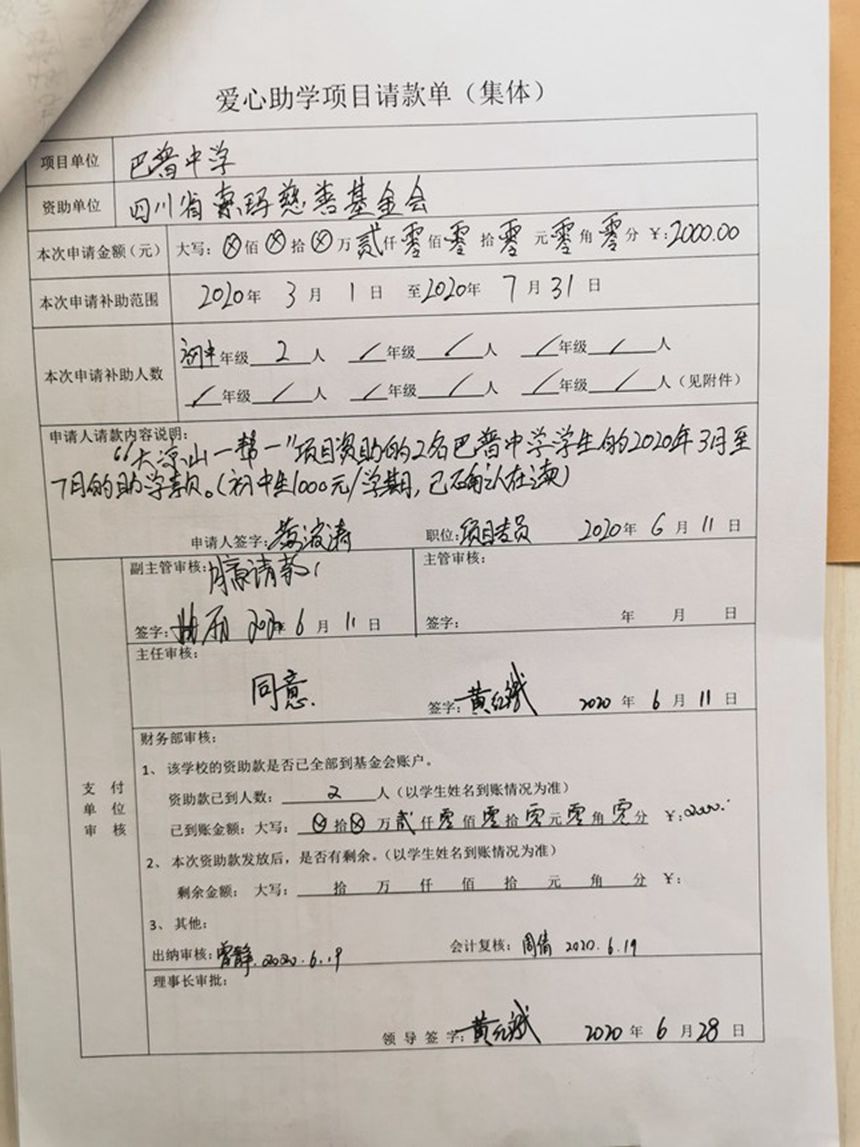 爱心助学项目请款单（集体）
项目单位 巴普中学
资助单位 四川省索玛慈善基金会
本次申请金额（元） 大写：ⓧ佰ⓧ拾ⓧ万贰仟零佰零拾零元零角零分 ￥：2000.00
本次申请补助范围 2020年 3月 1日 至2020年 7月31日
本次申请补助人数 初中年级 2 人 / 年级 / 人 / 年级 / 人
/ 年级 / 人 / 年级 / 人 / 年级 / 人（见附件）
申请人请款内容说明：
“大凉山一帮一”项目资助的2名巴普中学学生的2020年3月至
7月的助学款。（初中生1000元/学期，已确认在读）
申请人签字： 职位：项目专员 2020年 6月 11日
副主管审核： 主管审核：
签字： 2020年 6月 11日 签字： 年 月 日
主任审核：
同意.
签字：黄红斌 2020年 6月 11日
支付
单位
审核
财务部审核：
1、该学校的资助款是否已全部到基金会账户。
资助款已到人数： 2 人（以学生姓名到账情况为准）
已到账金额：大写：ⓧ拾ⓧ万贰仟零佰零拾零元零角零分 ￥：2000.
2、本次资助款发放后，是否有剩余。（以学生姓名到账情况为准）
剩余金额： 大写： 拾 万 仟 佰 拾 元 角 分 ￥：
3、其他：
出纳审核：雷静.2020.6.19 会计复核：周倩 2020.6.19
理事长审批：
领导签字：黄红斌 2020年 6月28日